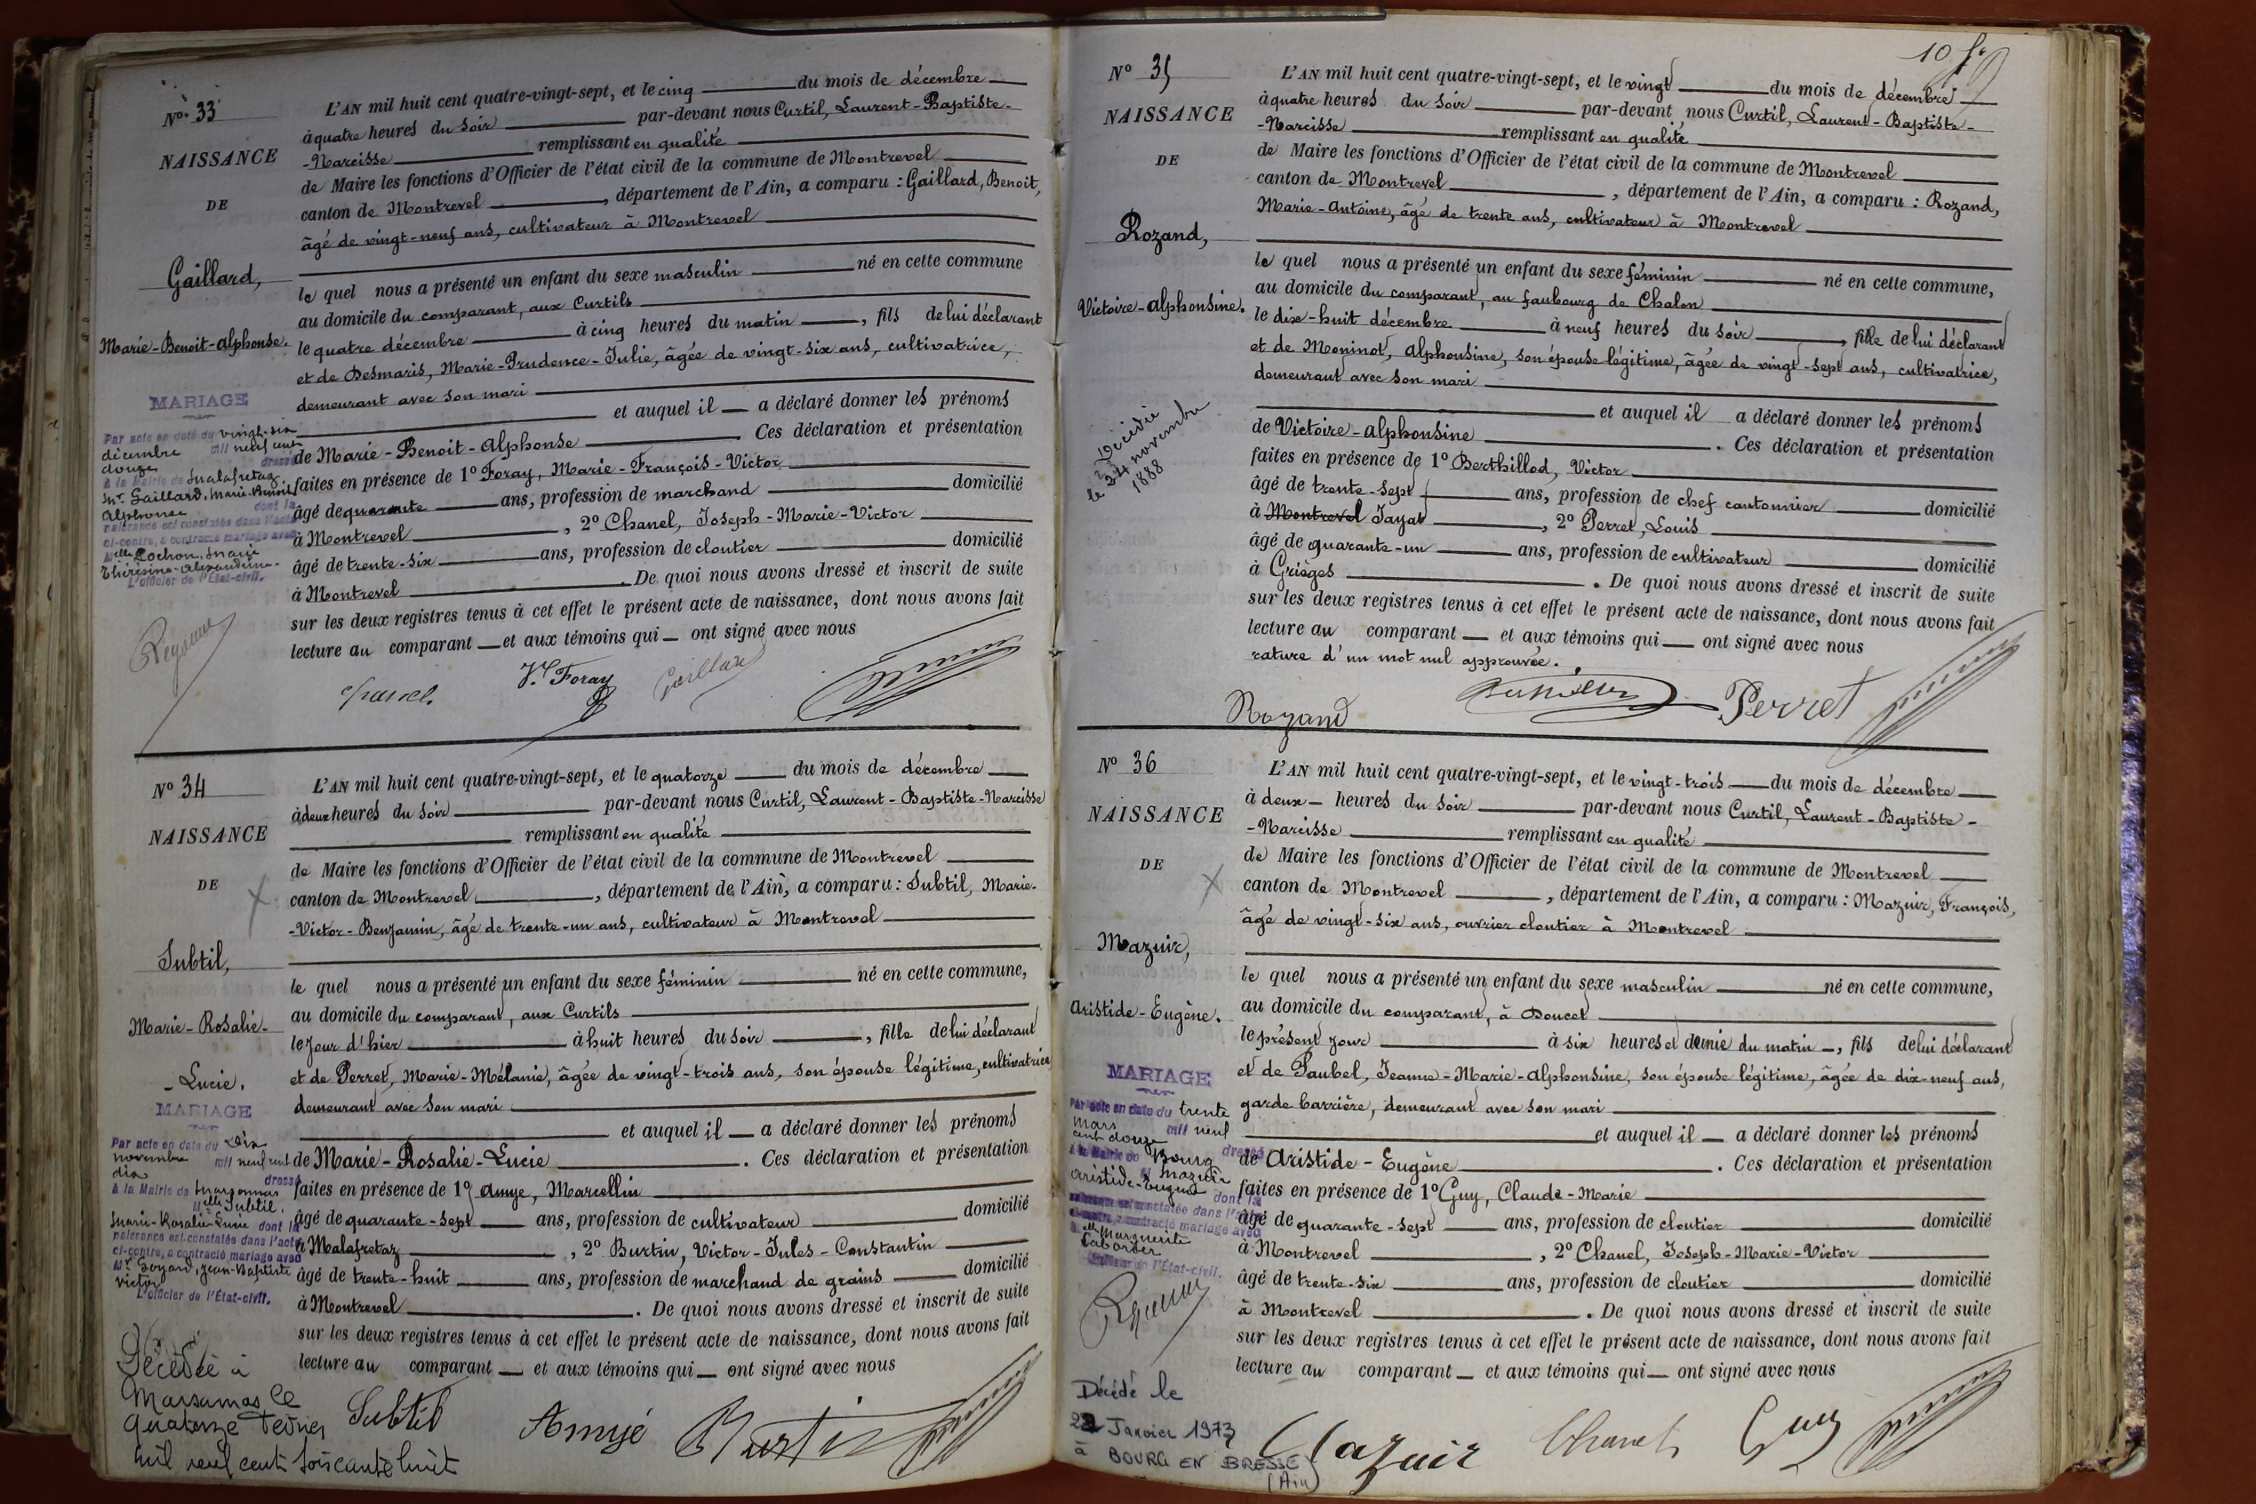 N° 33
NAISSANCE
DE
Gaillard,
Marie-Benoit-Alphonse.
MARIAGE
Par acte en date du vingt-six
décembre mil neuf cent
douze dressé
à la Mairie de Malafretaz
Mr Gaillard, Marie-Benoit
Alphonse dont la
naissance est constatée dans l'acte
ci-contre, a contracté mariage avec
Melle Cochon, Marie
Thérésine-Alexandrine-
L'officier de l'État-civil.
L'AN mil huit cent quatre-vingt-sept, et le cinq du mois de décembre
à quatre heures du soir par-devant nous Curtil, Laurent-Baptiste-
-Narcisse remplissant en qualité
de Maire les fonctions d'Officier de l'état civil de la commune de Montrevel
canton de Montrevel, département de l'Ain, a comparu : Gaillard, Benoit,
âgé de vingt-neuf ans, cultivateur à Montrevel
le quel nous a présenté un enfant du sexe masculin né en cette commune
au domicile du comparant, aux Curtils
le quatre décembre à cinq heures du matin, fils de lui déclarant
et de Desmaris, Marie-Prudence-Julie, âgée de vingt-six ans, cultivatrice,
demeurant avec son mari
et auquel il a déclaré donner les prénoms
de Marie-Benoit-Alphonse. Ces déclaration et présentation
faites en présence de 1° Foray, Marie-François-Victor
âgé de quarante ans, profession de marchand domicilié
à Montrevel, 2° Chanel, Joseph-Marie-Victor
âgé de trente-six ans, profession de cloutier domicilié
à Montrevel. De quoi nous avons dressé et inscrit de suite
sur les deux registres tenus à cet effet le présent acte de naissance, dont nous avons fait
lecture au comparant et aux témoins qui ont signé avec nous
Chanel. Vr Foray Gaillard
N° 34
NAISSANCE
DE
Subtil,
Marie-Rosalie-
-Lucie.
MARIAGE
Par acte en date du dix
novembre mil neuf cent
dix dressé
à la Mairie de Marsonnas
Melle Subtil,
Marie-Rosalie-Lucie dont la
naissance est constatée dans l'acte
ci-contre, a contracté mariage avec
Mr Goyard, Jean-Baptiste
Victor
L'officier de l'État-civil.
Décédée à
Marsonnas le
quatorze février
mil neuf cent soixante huit
L'AN mil huit cent quatre-vingt-sept, et le quatorze du mois de décembre
à deux heures du soir par-devant nous Curtil, Laurent-Baptiste-Narcisse
remplissant en qualité
de Maire les fonctions d'Officier de l'état civil de la commune de Montrevel
canton de Montrevel, département de l'Ain, a comparu : Subtil, Marie-
-Victor-Benjamin, âgé de trente-un ans, cultivateur à Montrevel
le quel nous a présenté un enfant du sexe féminin né en cette commune,
au domicile du comparant, aux Curtils
le jour d'hier à huit heures du soir, fille de lui déclarant
et de Perret, Marie-Mélanie, âgée de vingt-trois ans, son épouse légitime, cultivatrice
demeurant avec son mari
et auquel il a déclaré donner les prénoms
de Marie-Rosalie-Lucie. Ces déclaration et présentation
faites en présence de 1° Amye, Marcellin
âgé de quarante-sept ans, profession de cultivateur domicilié
à Malafretaz, 2° Burtin, Victor-Jules-Constantin
âgé de trente-huit ans, profession de marchand de grains domicilié
à Montrevel. De quoi nous avons dressé et inscrit de suite
sur les deux registres tenus à cet effet le présent acte de naissance, dont nous avons fait
lecture au comparant et aux témoins qui ont signé avec nous
Subtil Amyé Burtin
10
N° 35
NAISSANCE
DE
Rozand,
Victoire-Alphonsine.
Décédée
le 24 novembre
1888
L'AN mil huit cent quatre-vingt-sept, et le vingt du mois de décembre
à quatre heures du soir par-devant nous Curtil, Laurent-Baptiste-
-Narcisse remplissant en qualité
de Maire les fonctions d'Officier de l'état civil de la commune de Montrevel
canton de Montrevel, département de l'Ain, a comparu : Rozand,
Marie-Antoine, âgé de trente ans, cultivateur à Montrevel
le quel nous a présenté un enfant du sexe féminin né en cette commune,
au domicile du comparant, au faubourg de Chalon
le dix-huit décembre à neuf heures du soir, fille de lui déclarant
et de Moninot, Alphonsine, son épouse légitime, âgée de vingt-sept ans, cultivatrice,
demeurant avec son mari
et auquel il a déclaré donner les prénoms
de Victoire-Alphonsine. Ces déclaration et présentation
faites en présence de 1° Berthillod, Victor
âgé de trente-sept ans, profession de chef cantonnier domicilié
à Montrevel Jayat, 2° Perret, Louis
âgé de quarante-un ans, profession de cultivateur domicilié
à Grièges. De quoi nous avons dressé et inscrit de suite
sur les deux registres tenus à cet effet le présent acte de naissance, dont nous avons fait
lecture au comparant et aux témoins qui ont signé avec nous
rature d'un mot nul approuvée.
Rozand Perret
N° 36
NAISSANCE
DE
Mazuir,
Aristide-Eugène.
MARIAGE
Par acte en date du trente
mars mil neuf
cent douze dressé
à la Mairie de Bourg
Mr Mazuir
Aristide-Eugène dont la
naissance est constatée dans l'acte
ci-contre, a contracté mariage avec
Melle Marguerite
Laborier
L'officier de l'État-civil.
Décédé le
22 Janvier 1973
à BOURG EN BRESSE
(Ain)
L'AN mil huit cent quatre-vingt-sept, et le vingt-trois du mois de décembre
à deux heures du soir par-devant nous Curtil, Laurent-Baptiste-
-Narcisse remplissant en qualité
de Maire les fonctions d'Officier de l'état civil de la commune de Montrevel
canton de Montrevel, département de l'Ain, a comparu : Mazuir, François,
âgé de vingt-six ans, ouvrier cloutier à Montrevel
le quel nous a présenté un enfant du sexe masculin né en cette commune,
au domicile du comparant, à Doucet
le présent jour à six heures et demie du matin, fils de lui déclarant
et de Paubel, Jeanne-Marie-Alphonsine, son épouse légitime, âgée de dix-neuf ans,
garde barrière, demeurant avec son mari
et auquel il a déclaré donner les prénoms
de Aristide-Eugène. Ces déclaration et présentation
faites en présence de 1° Guy, Claude-Marie
âgé de quarante-sept ans, profession de cloutier domicilié
à Montrevel, 2° Chanel, Joseph-Marie-Victor
âgé de trente-six ans, profession de cloutier domicilié
à Montrevel. De quoi nous avons dressé et inscrit de suite
sur les deux registres tenus à cet effet le présent acte de naissance, dont nous avons fait
lecture au comparant et aux témoins qui ont signé avec nous
Mazuir Chanel Guy